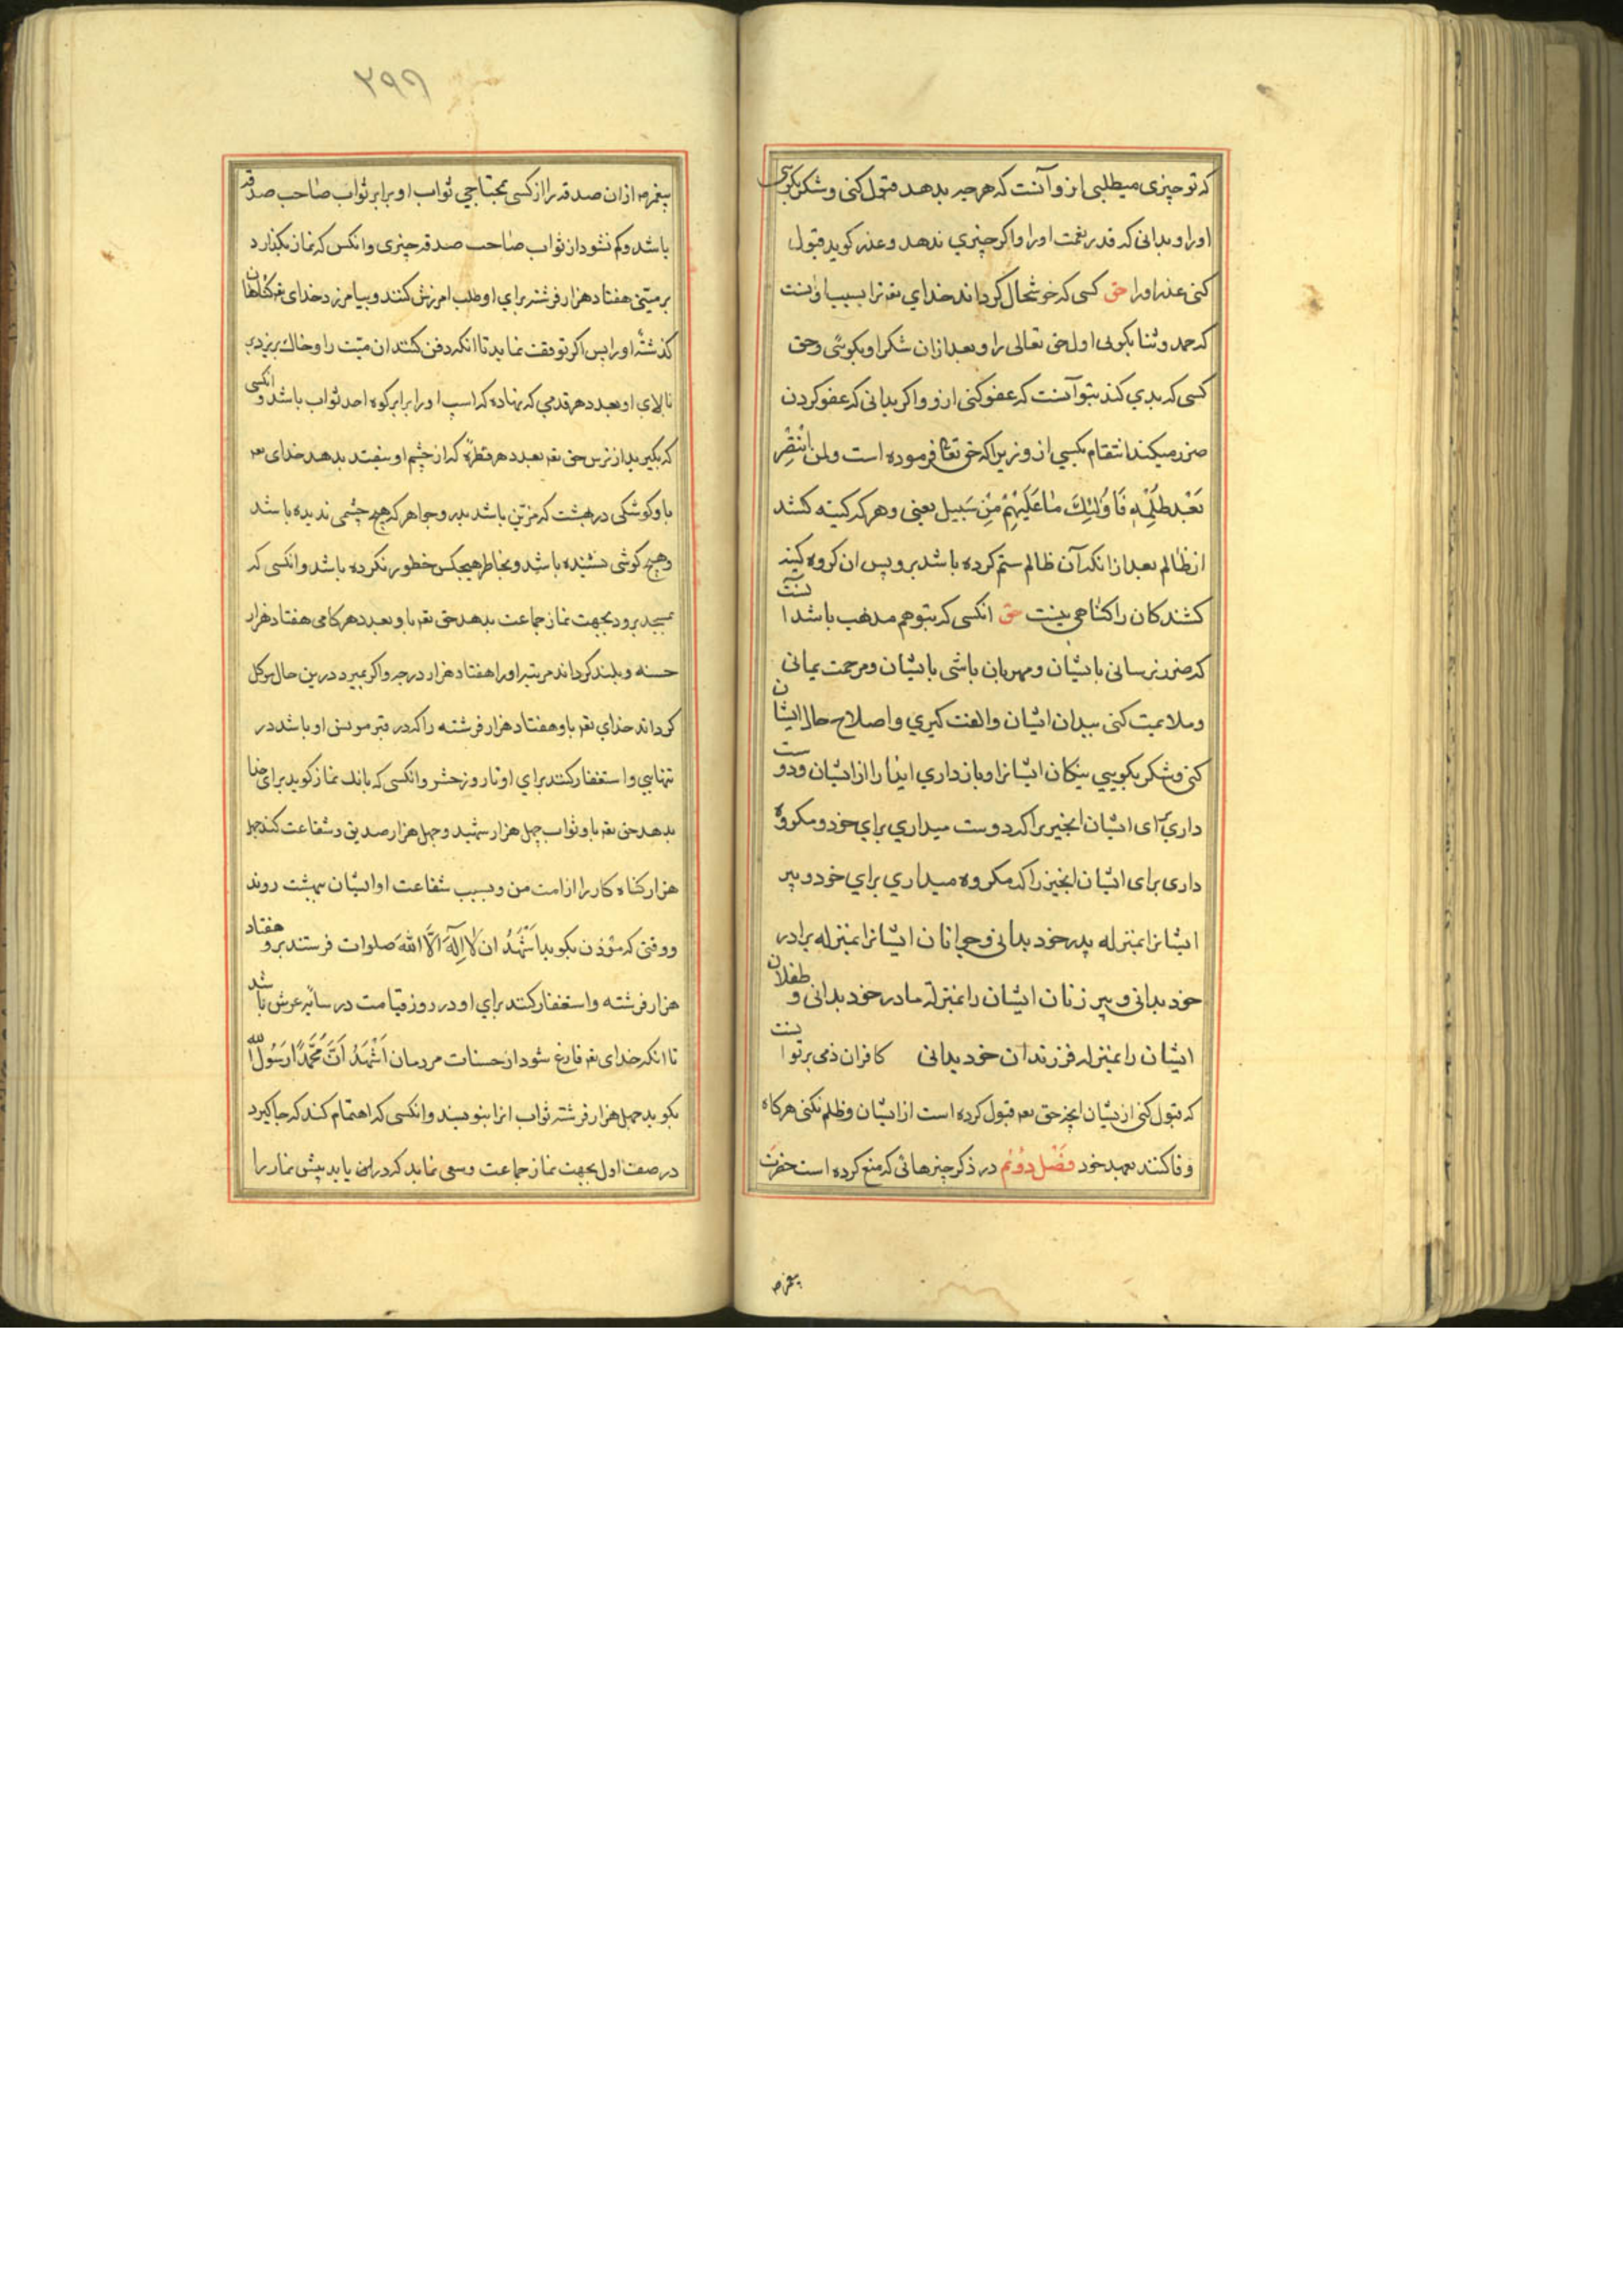 که تو چیزی میطلبی ازو آنست که هرچه بدهد قبول کنی و شکر بکویی
او را و بدانی که قدر نعمت او را و اکر چیزی ندهد و عذر کوید قبول
کنی عذر او را حق کسی که خوشحال کرداند خدای تعم ترا بسبب او آنست
که حمد و ثنا بکویی اول حق تعالی را و بعد ازان شکر او بکویی و حق
کسی که بدی کند بتو آنست که عفو کنی ازو و اکر بدانی که عفو کردن
ضرر میکند انتقام بکشی ازو زیرا که حق تعا فرموده است ولمن انْتَصَرَ
بَعْدَ ظُلْمِهِ فَاُولٰئِكَ مٰا عَلَيْهِمْ مِنْ سَبيل یعنی و هر که کینه کشد
از ظالم بعد از انکه آن ظالم ستم کرده باشد برو پس ان کروه کینه
کشندکان را کناهی نیست حق انکسی که بتو هم مذهب باشد آنست
که ضرر نرسانی بایشان و مهربان باشی بایشان و مرحمت نمائی
و ملایمت کنی ببدان ایشان و الفت کیری و اصلاح حال ایشان
کنی و شکر بکویی نیکان ایشانرا و بازداری ایذا را از ایشان و دوست
داری برای ایشان انچیزیرا که دوست میداری برای خود و مکروه
داری برای ایشان انچیز را که مکروه میداری برای خود و پیر
ایشانرا بمنزله پدر خود بدانی و جوانان ایشانرا بمنزله برادر
خود بدانی و پیر زنان ایشان را بمنزلهٔ مادر خود بدانی و طفلان
ایشان را بمنزله فرزندان خود بدانی کافران ذمی بر تو آنست
که قبول کنی از یشان انچه حق تعم قبول کرده است از ایشان و ظلم نکنی هرکاه
وفا کنند بعهد خود فصْل دوُيُم در ذکر چیزهائی که منع کرده است حضرت
پیغمبر ص
۲۹۶
پیغمبر ص ازان صدقه را از کسی بمحتاجی ثواب او برابر ثواب صاحب صدقه
باشد و کم نشود از ثواب صاحب صدقه چیزی و انکس که نماز بکذارد
بر میتی هفتاد هزار فرشته برای او طلب امرزش کنند و بیامرزد خدای تعم کناهان
کذشتهٔ او را پس اکر توقف نماید تا انکه دفن کنند ان میّت را و خاك بریزد بر
بالای او بعدد هر قدمی که نهاده که اسب او را برابر کوه احد ثواب باشد و انکسی
که بکیرید از ترس حق تعم بعدد هر قطرهٔ که از چشم او بیفتد بدهد خدای تعم
باو کوشکی در بهشت که مزیّن باشد بدر و جواهر که هیچ چشمی ندیده باشد
و هیچ کوشی نشنیده باشد و بخاطر هیچکس خطور نکرده باشد و انکسی که
بمسجد برود بجهت نماز جماعت بدهد حق تعم باو بعدد هر کامی هفتاد هزار
حسنه و بلند کرداند مرتبهٔ او را هفتاد هزار درجه و اکر بمیرد درین حال موکل
کرداند خدای تعم باو هفتاد هزار فرشته را که در قبر مونس او باشد در
تنهایی و استغفار کنند برای او تا روز حشر و انکسی که بانك نماز کوید برای خدا
بدهد حق تعم باو ثواب چهل هزار شهید و چهل هزار صدیق و شفاعت کند چهل
هزار کناه کار را از امت من و بسبب شفاعت او ایشان ببهشت روند
و وقتی که مؤذن بکوید اَشْهَدُ ان لٰا اِلٰهَ اِلَّا اللّٰه صلوات فرستند برو هفتاد
هزار فرشته و استغفار کنند برای او در روز قیامت در سایه عرش باشد
تا انکه خدای تعم فارغ شود از حسنات مردمان اَشْهَدُ اَنَّ مُحَمَّدًا رَسُولُ اللّٰه
بکوید چهل هزار فرشته ثواب انرا بنویسند و انکسی که اهتمام کند که جا کیرد
در صف اول بجهت نماز جماعت و سعی نماید که دران یابد پیش نماز را